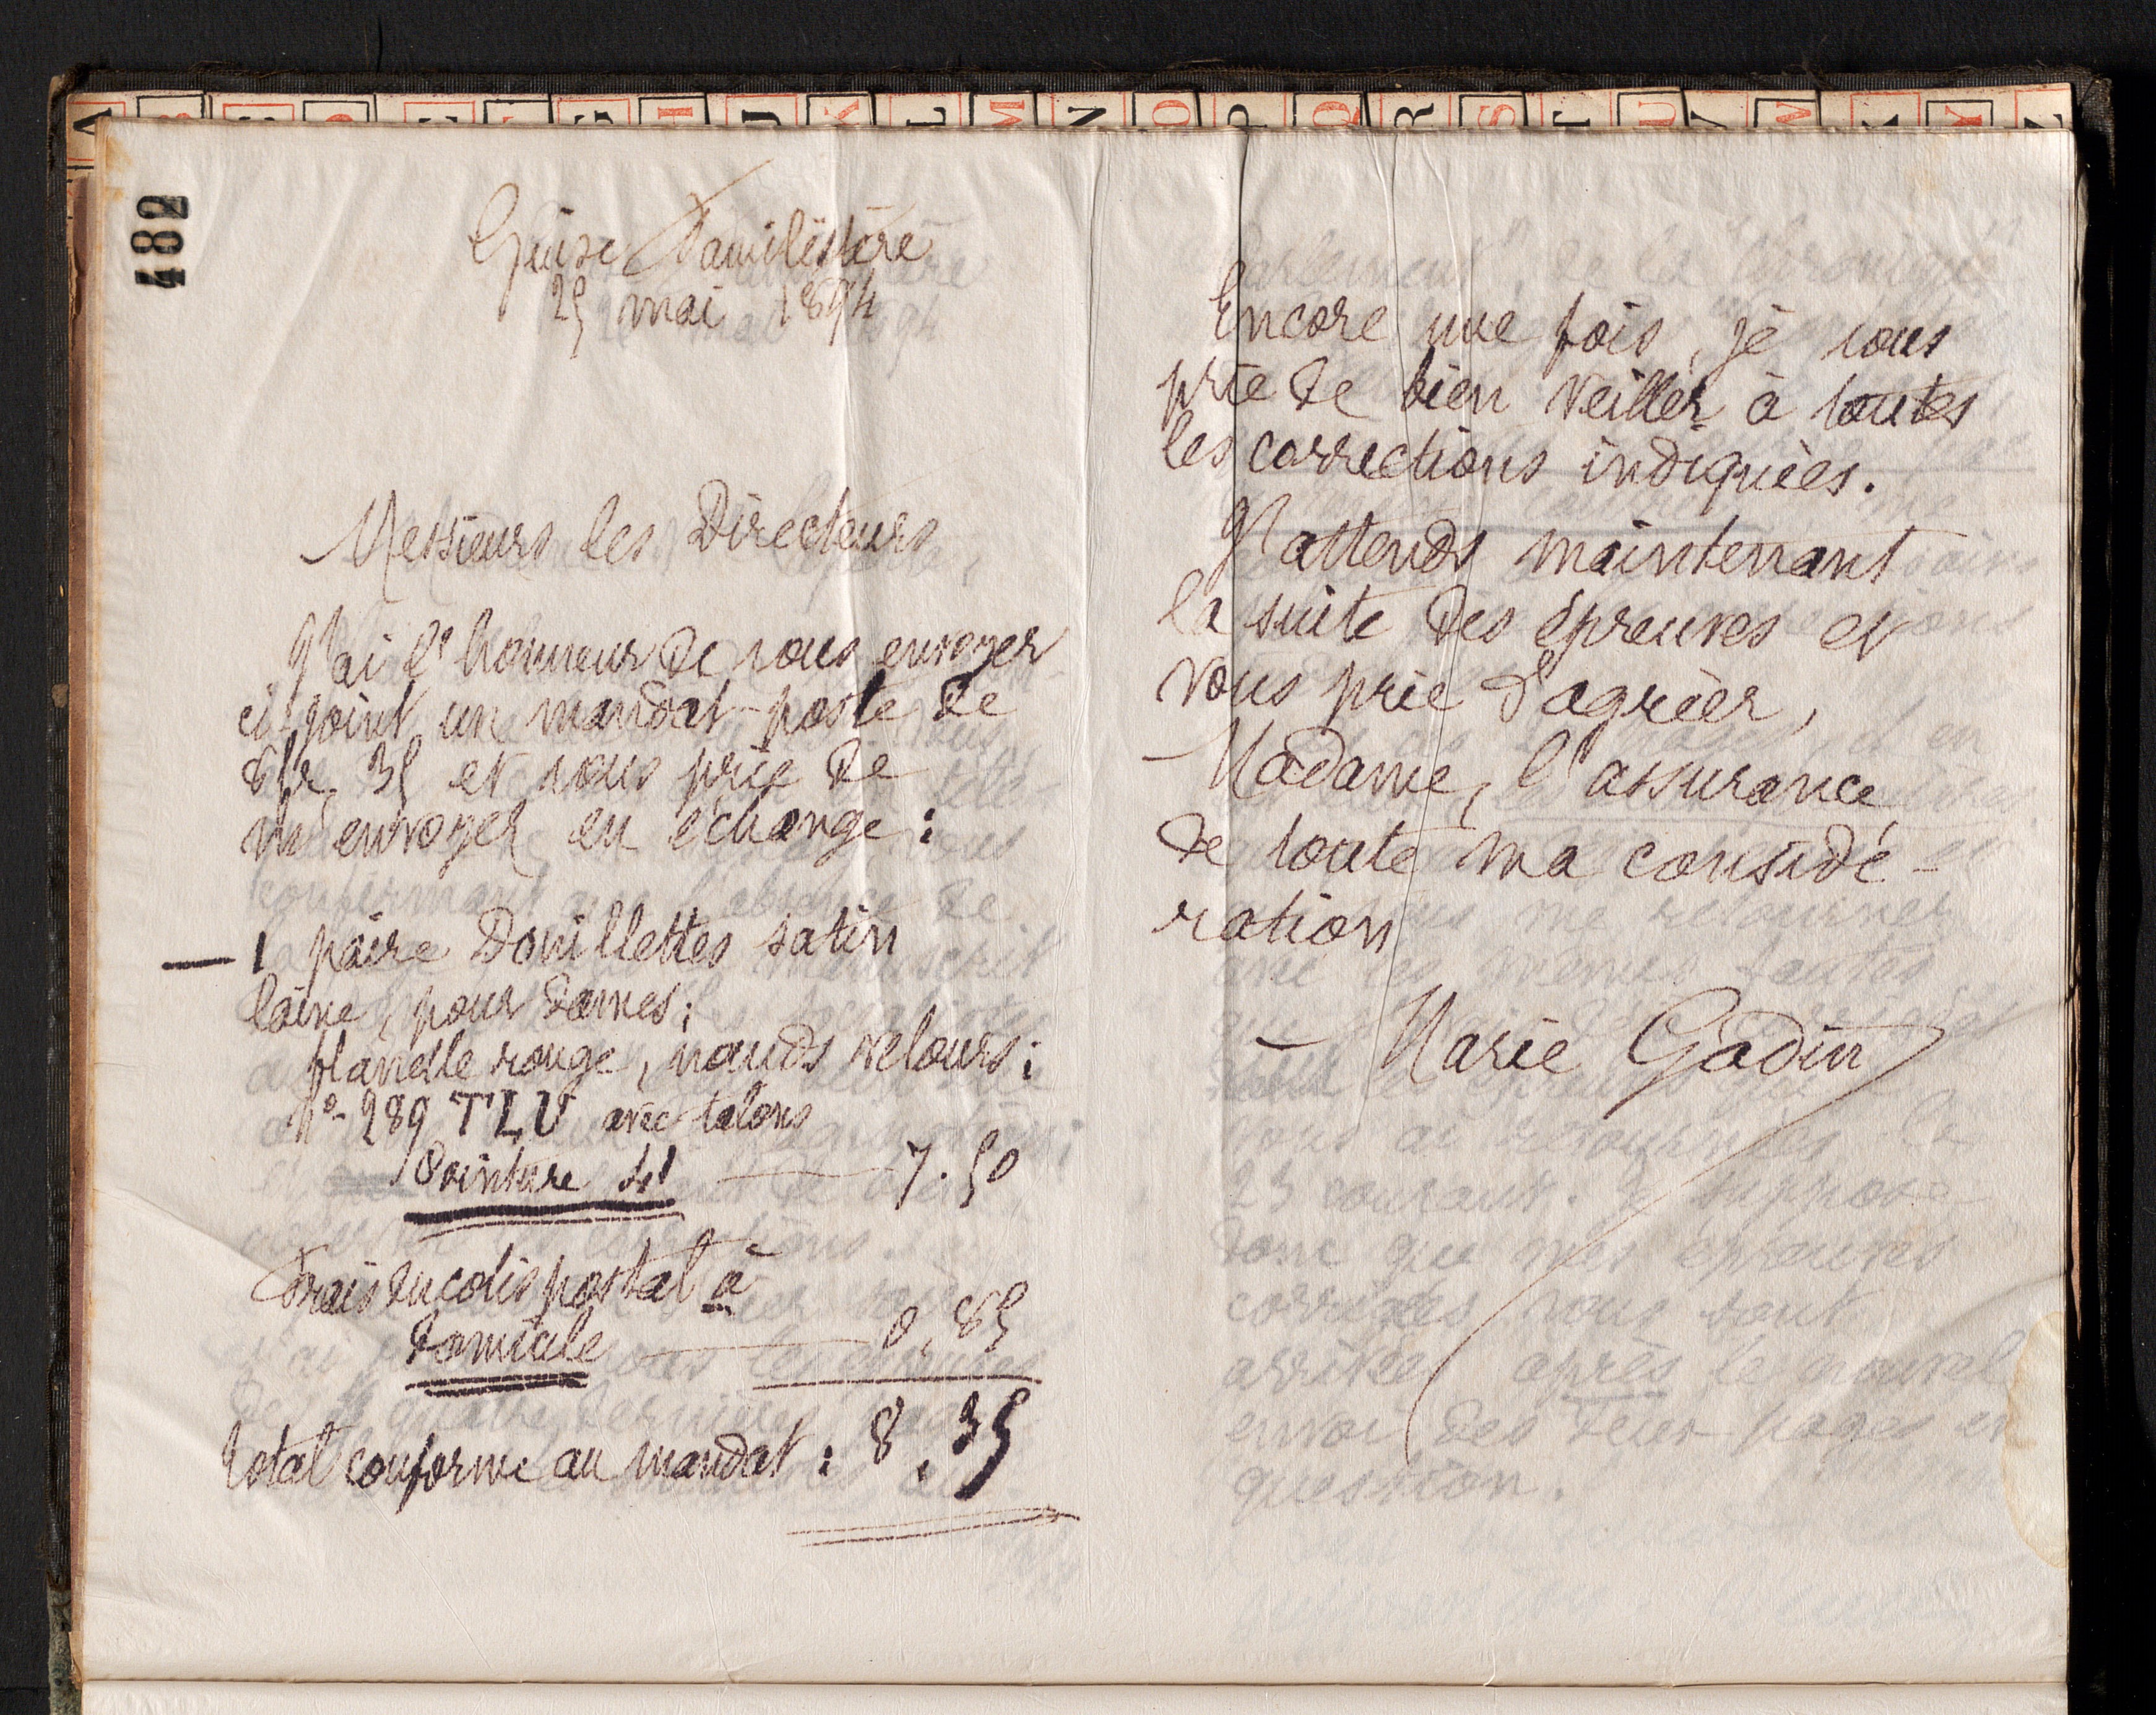 A B C D E F G H I J K L M N O P Q R S T U V W X Y Z
482
Guise Familistère
25 mai 1894
Messieurs les Directeurs
J'ai l'honneur de vous envoyer
ci-joint un mandat-poste de
8 fr. 35 et vous prie de
m'envoyer en échange :
— 1 paire Douillettes satin
laine, pour dames ;
flanelle rouge, nœuds velours ;
N° 289 TLV avec talons
Pointure 41 — 7.50
Frais du colis postal à
domicile — 0,85
Total conforme au mandat : 8.35
Encore une fois, je vous
prie de bien veiller à toutes
les corrections indiquées.
J'attends maintenant
la suite des épreuves et
vous prie d'agréer,
Madame, l'assurance
de toute ma considé-
ration
Marie Godin